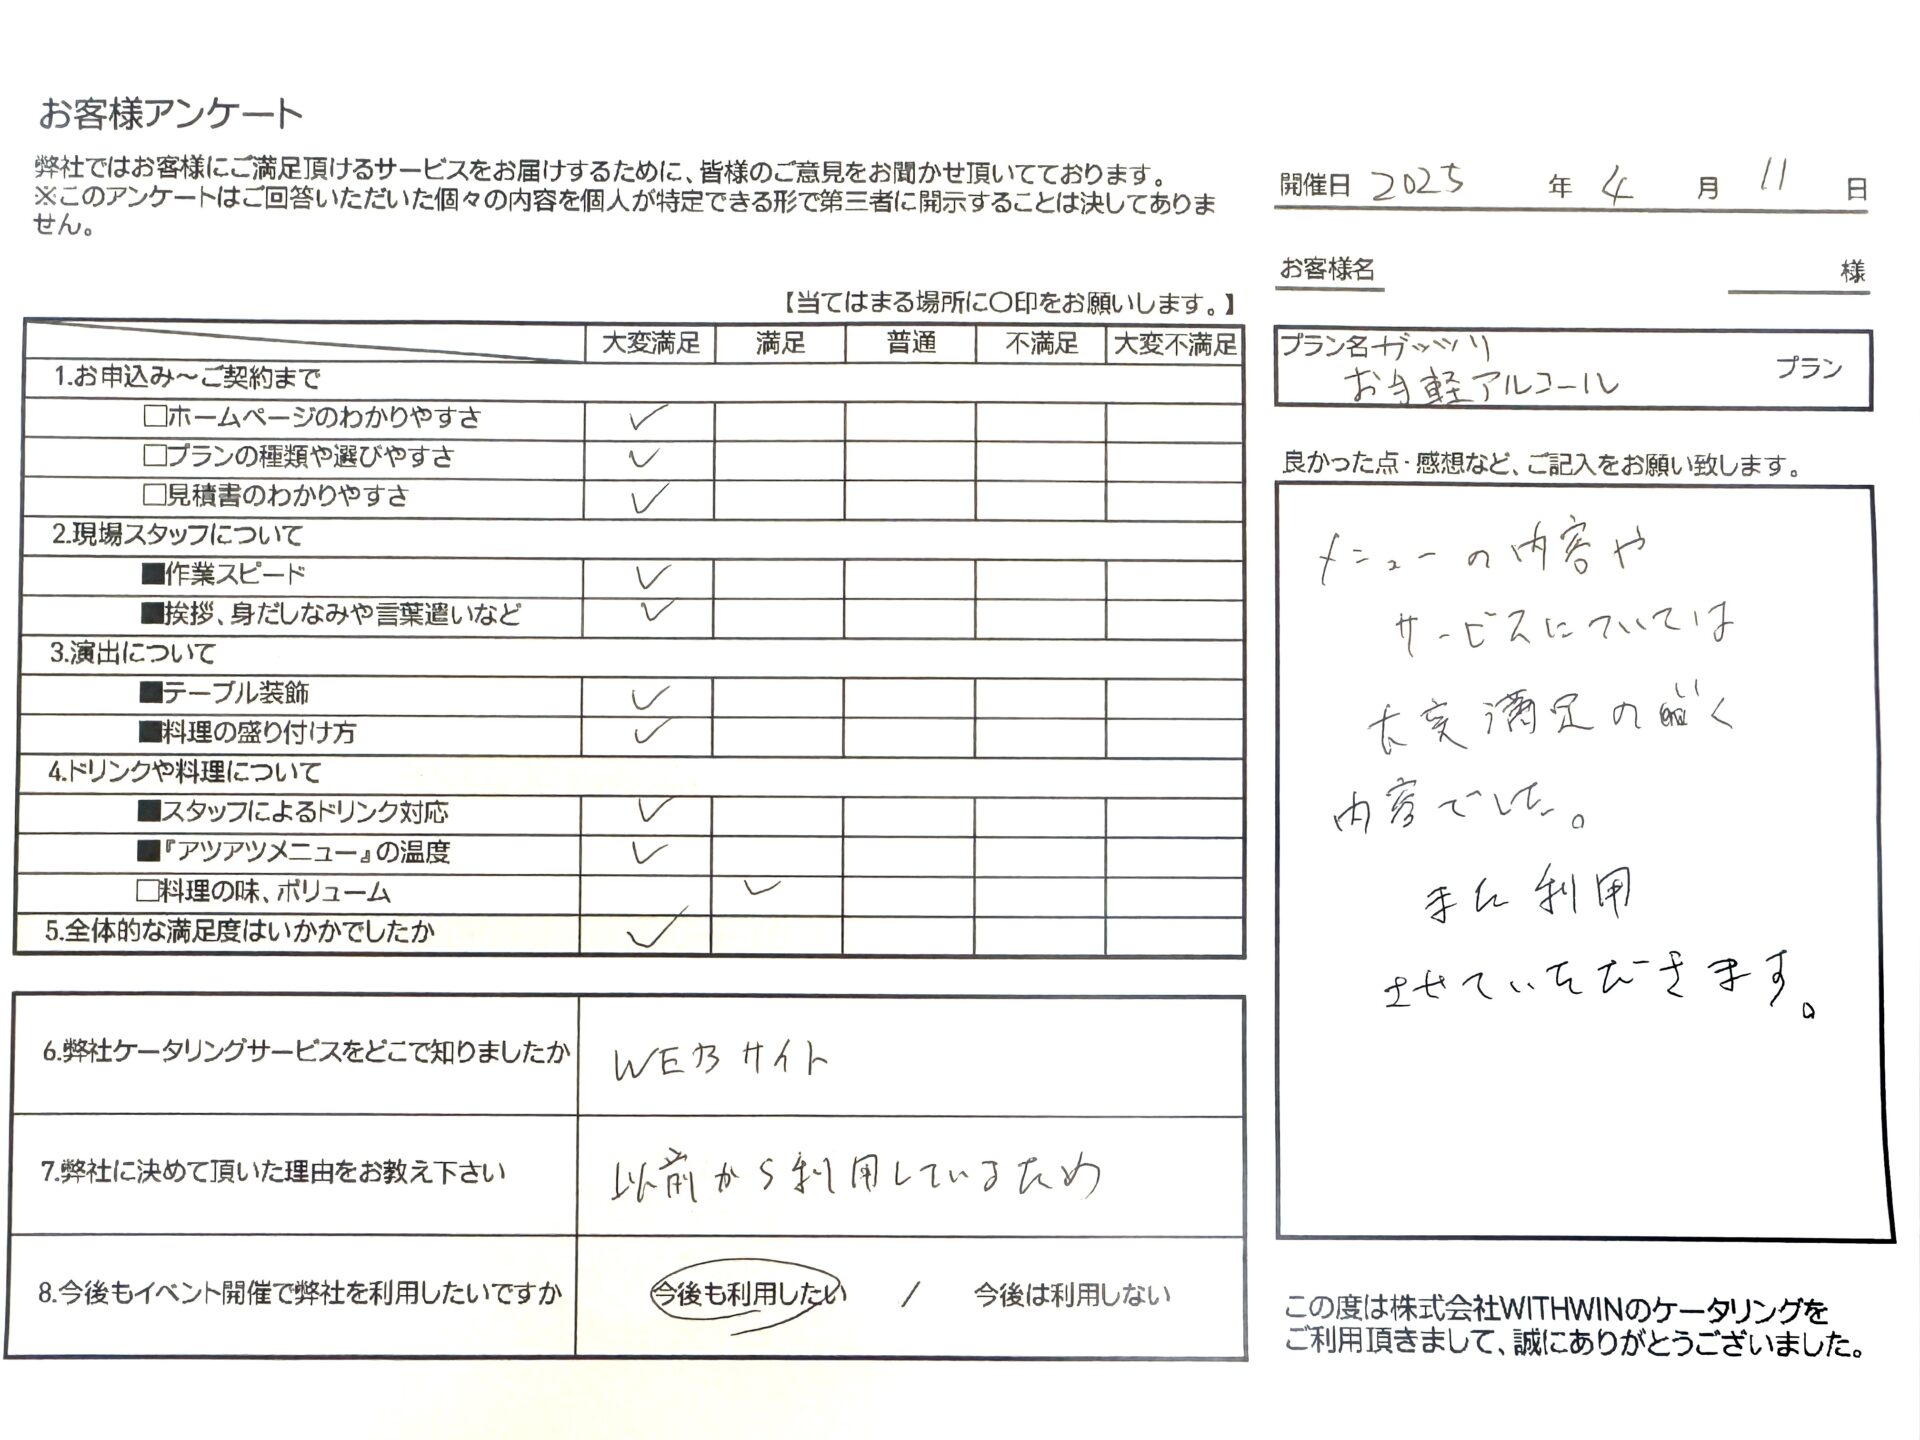 お客様アンケート
弊社ではお客様にご満足頂けるサービスをお届けするために、皆様のご意見をお聞かせ頂いてております。
※このアンケートはご回答いただいた個々の内容を個人が特定できる形で第三者に開示することは決してありま
せん。
開催日 2025 年 4 月 11 日
お客様名 様
【当てはまる場所に〇印をお願いします。】
大変満足 満足 普通 不満足 大変不満足
1.お申込み～ご契約まで
□ホームページのわかりやすさ ✓
□プランの種類や選びやすさ ✓
□見積書のわかりやすさ ✓
2.現場スタッフについて
■作業スピード ✓
■挨拶、身だしなみや言葉遣いなど ✓
3.演出について
■テーブル装飾 ✓
■料理の盛り付け方 ✓
4.ドリンクや料理について
■スタッフによるドリンク対応 ✓
■『アツアツメニュー』の温度 ✓
□料理の味、ボリューム ✓
5.全体的な満足度はいかかでしたか ✓
6.弊社ケータリングサービスをどこで知りましたか WEBサイト
7.弊社に決めて頂いた理由をお教え下さい 以前から利用しているため
8.今後もイベント開催で弊社を利用したいですか 今後も利用したい / 今後は利用しない
プラン名 ガッツリ
お手軽アルコール プラン
良かった点・感想など、ご記入をお願い致します。
メニューの内容や
サービスについては
大変満足の いく
内容でした。
また利用
させていただきます。
この度は株式会社WITHWINのケータリングを
ご利用頂きまして、誠にありがとうございました。